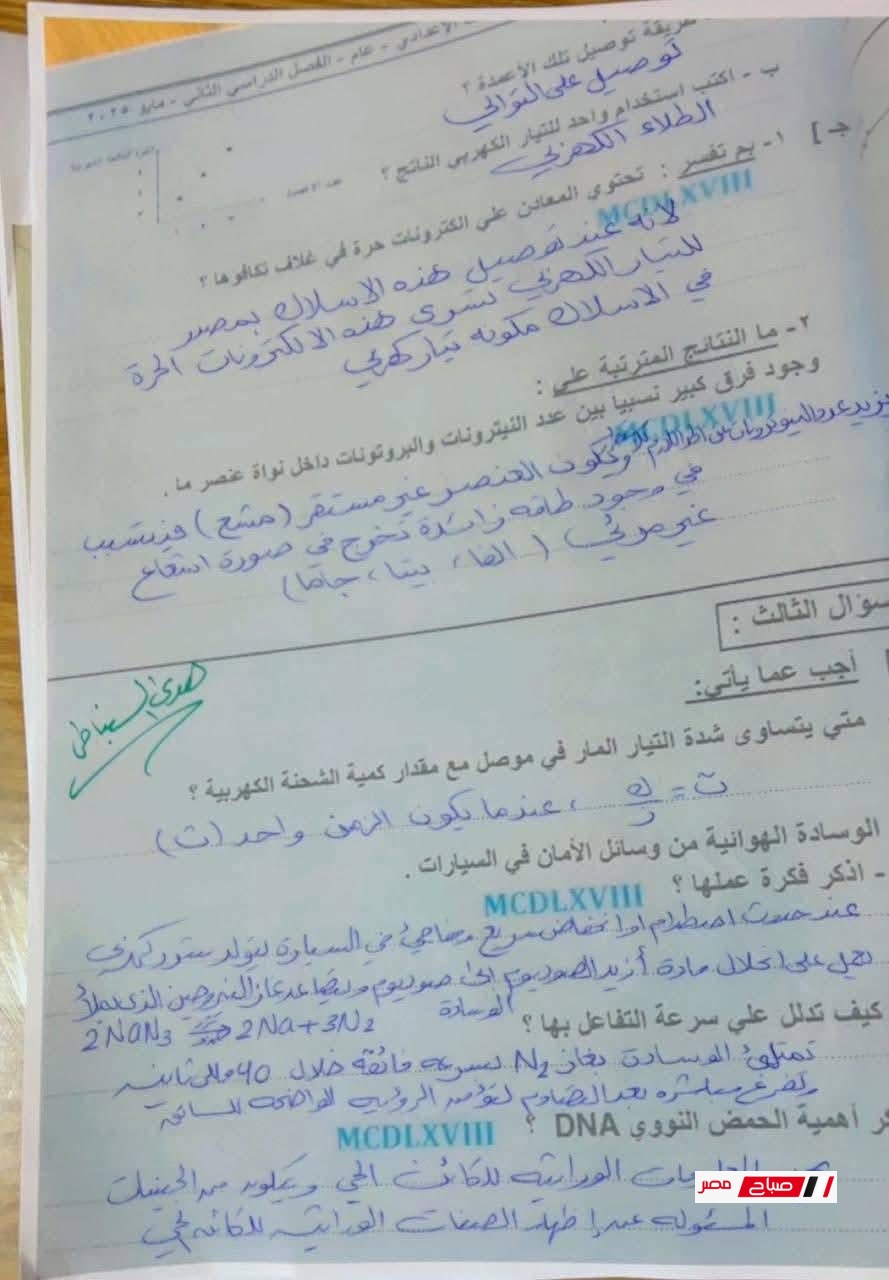 الإعدادي - عام - الفصل الدراسي الثاني - مايو ٢٠٢٥
طريقة توصيل تلك الأعمدة ؟
توصيل على التوالي
ب - اكتب استخدام واحد للتيار الكهربي الناتج ؟
الطلاء الكهربي
جـ ] ١- بم تفسر : تحتوي المعادن على الكترونات حرة في غلاف تكافؤها ؟
MCDLXVIII
لانه عند توصيل هذه الاسلاك بمصدر
للتيار الكهربي تسرى هذه الالكترونات الحرة
في الاسلاك مكونه تيار كهربي
٢- ما النتائج المترتبة على :
وجود فرق كبير نسبيا بين عدد النيترونات والبروتونات داخل نواة عنصر ما .
MCDLXVIII
يزيد عدد النيوترونات عن الحد اللازم
ويكون العنصر غير مستقر (مشع) فيتسبب
في وجود طاقه زائدة تخرج في صورة اشعاع
غير مرئي ( الفا ، بيتا ، جاما)
سؤال الثالث :
أجب عما يأتي:
متي يتساوى شدة التيار المار في موصل مع مقدار كمية الشحنة الكهربية ؟
ت = ك/ز ، عندما يكون الزمن واحد (ث)
الوسادة الهوائية من وسائل الأمان في السيارات .
- اذكر فكرة عملها ؟
MCDLXVIII
عند حدوث اصطدام او انخفاض سريع مفاجئ في السيارة يتولد شرر كهربي
يعمل على انحلال مادة أزيد الصوديوم الى صوديوم ويتصاعد غاز النيتروجين الذى يملأ
الوسادة
2NaN3 ⇌ 2Na + 3N2
كيف تدلل علي سرعة التفاعل بها ؟
تمتلئ الوسادة بغاز N2 بسرعه فائقة خلال 40 مللي ثانيه
وتفرغ مباشره بعد التصادم لتؤمن الرؤيه الواضحه للسائق
أهمية الحمض النووي DNA ؟
MCDLXVIII
الوراثيه للكائن الحي ويتكون من الجينات
المسئوله عن إظهار الصفات الوراثيه للكائن الحي
صباح مصر